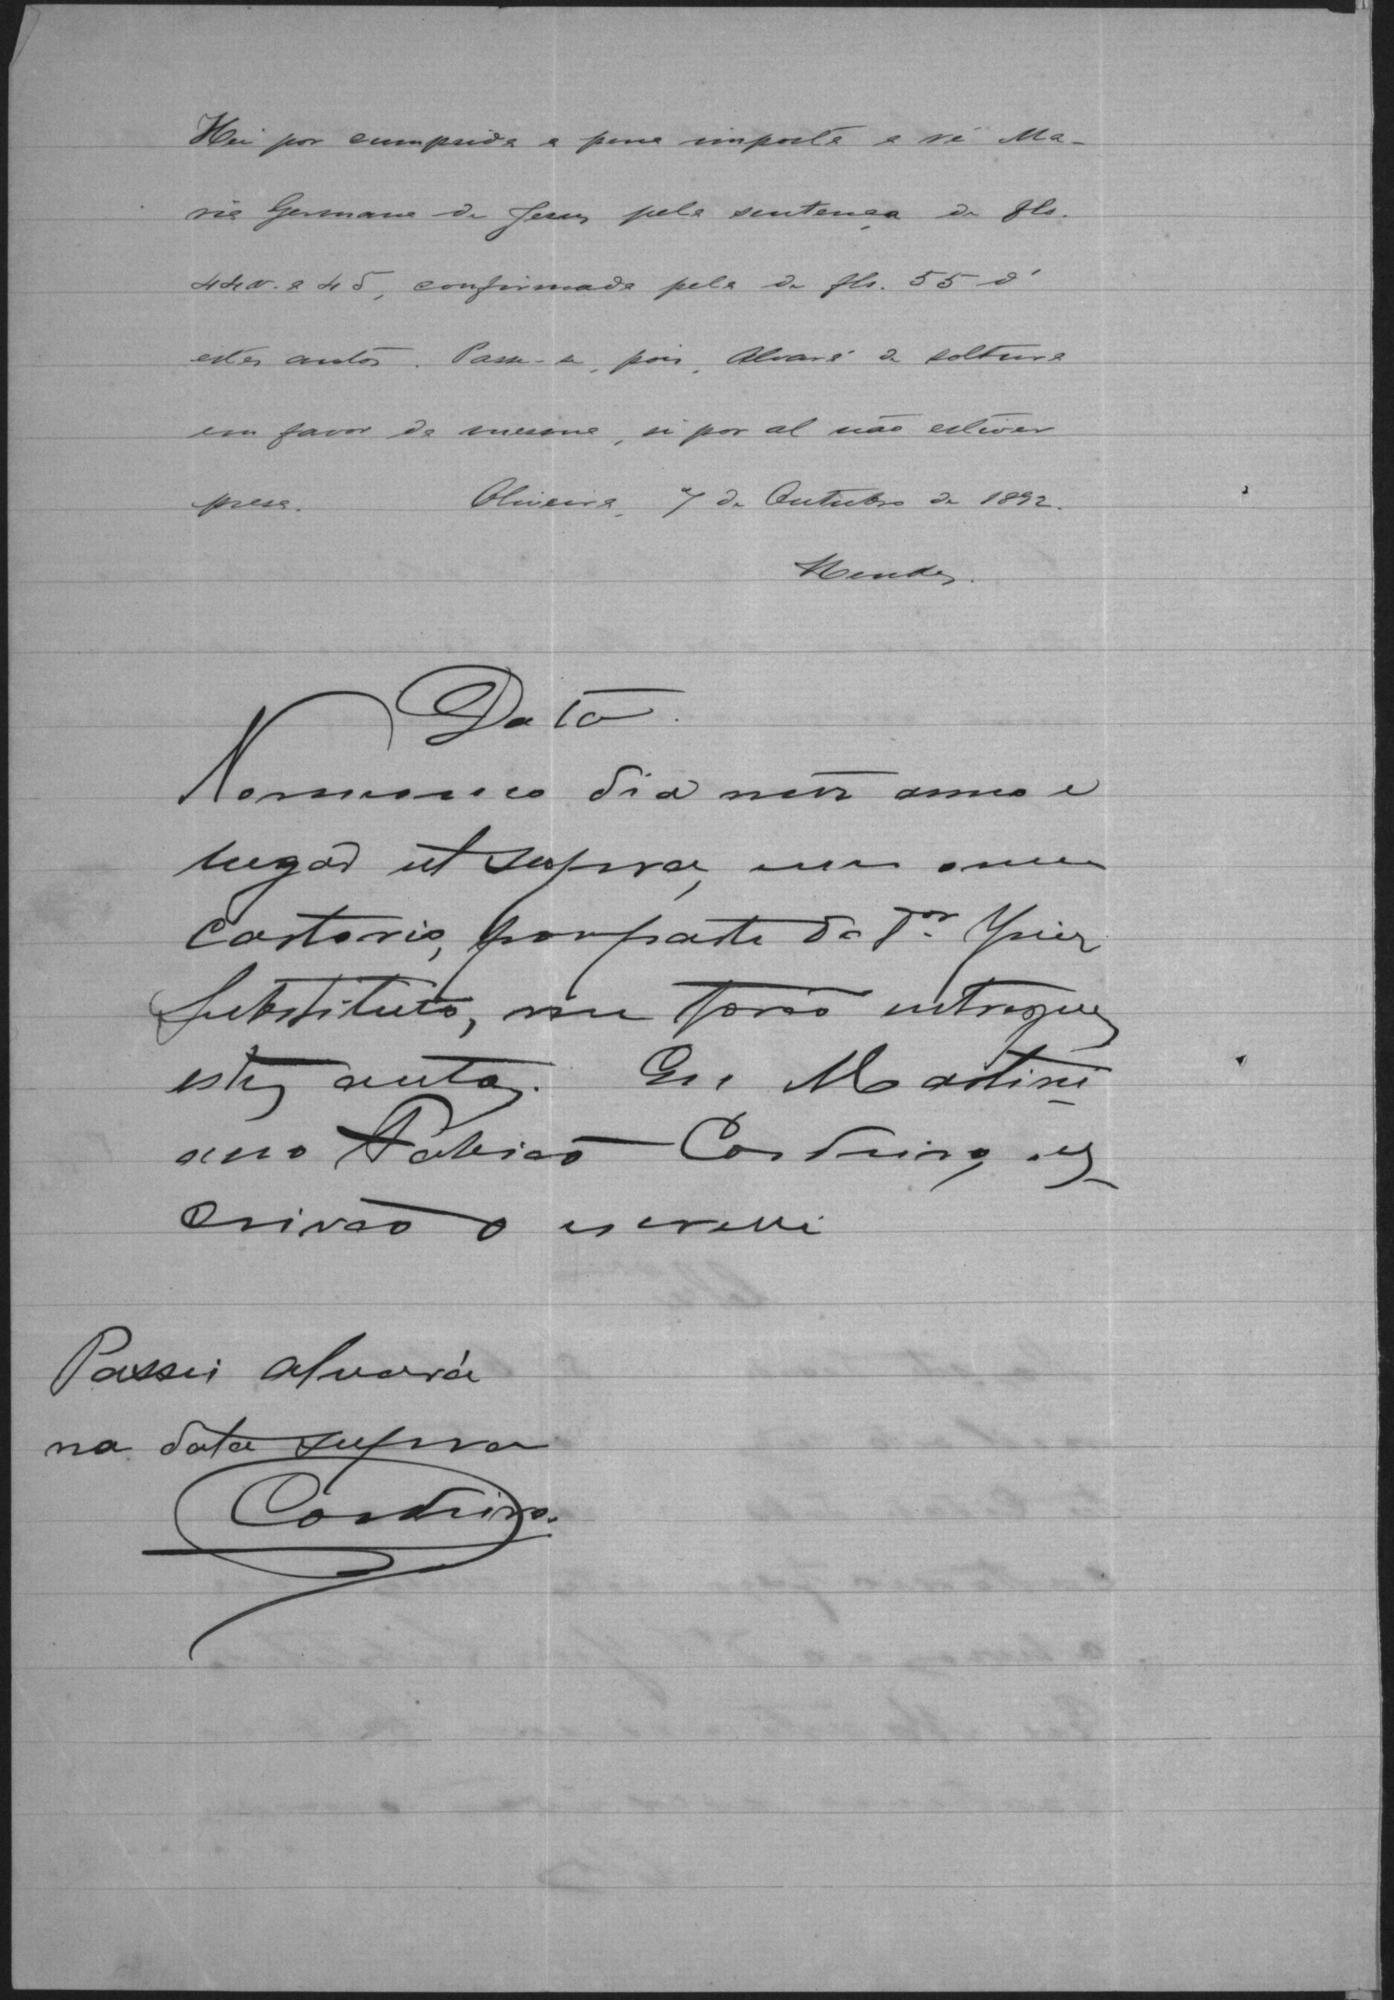 Hei por cumprida a pena imposta a ré Ma-
ria Germana de Jesus pela sentença de fls.
44v. a 45, confirmada pela de fls. 55 d'
estes autos. Passe-se, pois, Alvará de soltura
em favor da mesma, si por al não estiver
presa. Oliveira, 7 de Outubro de 1892.
Mendes.
Data.
No mesmo dia mez anno e
lugar ut supra, em meu
cartorio, por parte do Dr. Juiz
Substituto, me forão entregues
estes autos. Eu Martini
ano Cordeiro, es-
crivão o escrevi
Passei alvará
na data supra
Cordeiro.